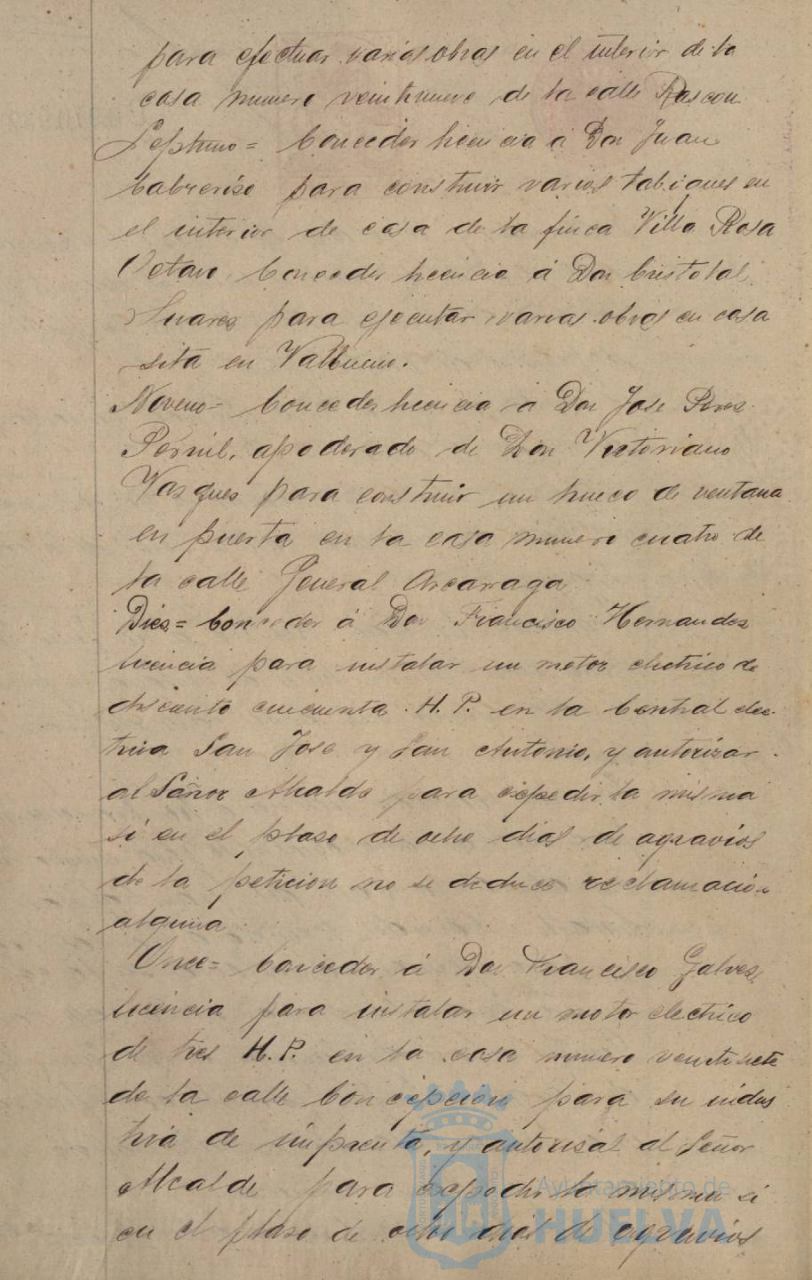 para efectuar varias obras en el interior de la
casa numero veintinueve de la calle Rascon
Septimo = Conceder licencia á Don Juan
Cabreriso para construir varios tabiques en
el interior de casa de la finca Villa Rosa
Octavo. Conceder licencia á Don Cristobal
Suarez para ejecutar varias obras en casa
sita en Valbueno.
Noveno = Conceder licencia á Don Jose Perez
Pernil, apoderado de Don Victoriano
Vasques para construir un hueco de ventana
en puerta en la casa numero cuatro de
la calle General Arcarraga
Diés = Conceder á Don Francisco Hernandez
licencia para instalar un motor electrico de
cincuenta H. P. en la Central elec-
trica San Jose y San Antonio, y autorizar
al Señor Alcalde para expedir la misma
si en el plaso de ocho dias de agravios
de la peticion no se deduce reclamacion
alguna
Once = Conceder á Don Francisco Galvez
licencia para instalar un motor electrico
de tres H. P. en la casa numero veintisiete
de la calle Concepcion para su indus
tria de imprenta, y autorisar al Señor
Alcalde para expedir la misma si
en el plaso de ocho dias de agravios
Ayuntamiento de
HUELVA